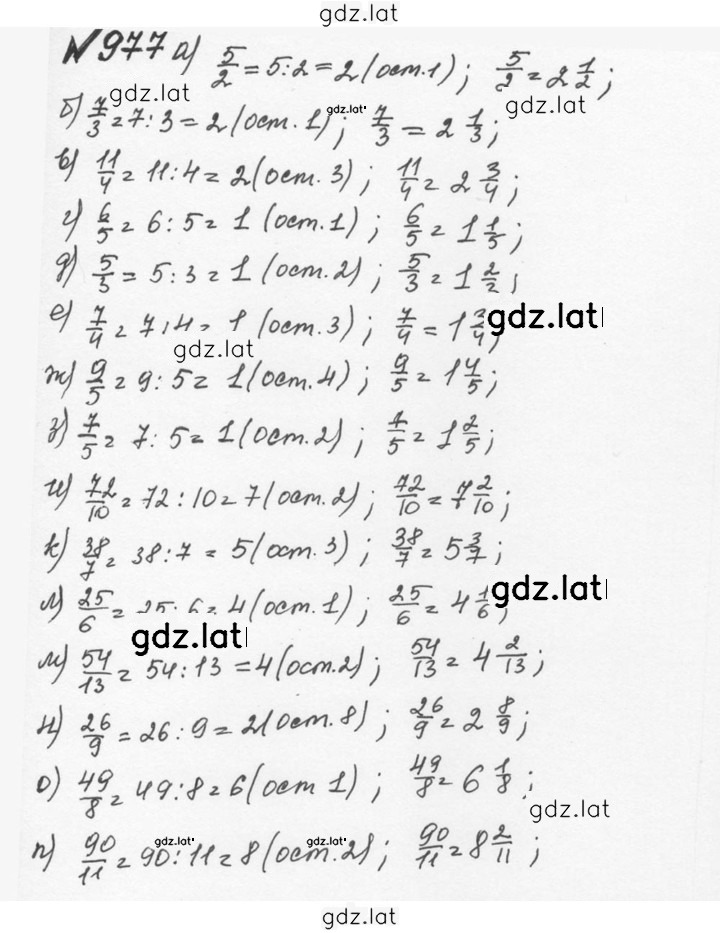 gdz.lat
№977 а) 5/2 = 5:2 = 2 (ост.1); 5/2 = 2 1/2;
gdz.lat gdz.lat gdz.lat
б) 7/3 = 7:3 = 2 (ост. 1); 7/3 = 2 1/3;
в) 11/4 = 11:4 = 2 (ост. 3); 11/4 = 2 3/4;
г) 6/5 = 6:5 = 1 (ост.1); 6/5 = 1 1/5;
д) 5/3 = 5:3 = 1 (ост.2); 5/3 = 1 2/2;
е) 7/4 = 7:4 = 1 (ост. 3); 7/4 = 1 3/4;
gdz.lat
gdz.lat
ж) 9/5 = 9:5 = 1 (ост.4); 9/5 = 1 4/5;
з) 7/5 = 7:5 = 1 (ост.2); 7/5 = 1 2/5;
и) 72/10 = 72:10 = 7 (ост.2); 72/10 = 7 2/10;
к) 38/7 = 38:7 = 5 (ост. 3); 38/7 = 5 3/7;
л) 25/6 = 25:6 = 4 (ост.1); 25/6 = 4 1/6;
gdz.lat
gdz.lat
м) 54/13 = 54:13 = 4 (ост.2); 54/13 = 4 2/13;
н) 26/9 = 26:9 = 2 (ост.8); 26/9 = 2 8/9;
о) 49/8 = 49:8 = 6 (ост 1); 49/8 = 6 1/8;
gdz.lat
gdz.lat gdz.lat
п) 90/11 = 90:11 = 8 (ост.2); 90/11 = 8 2/11;
gdz.lat